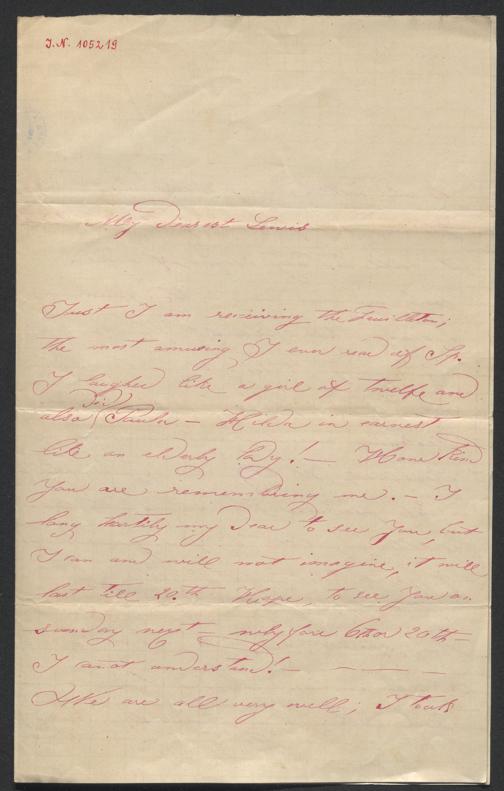 I.N. 105219
My Dearest Lewis
Just I am receiving the Feuilleton;
the most amusing, I ever read of Sp.
I laughed like a girl of twelfe and
also did Paula — Hilda in earnest
like an elderly Lady! — How kind
you are remembering me. — I
long hartily my Dear to see you, but
I can and will not imagine, it will
last till 20.th Hope, to see you on
sunday next, 6 or 20th —
I canot understand! —
We are all very well; I took